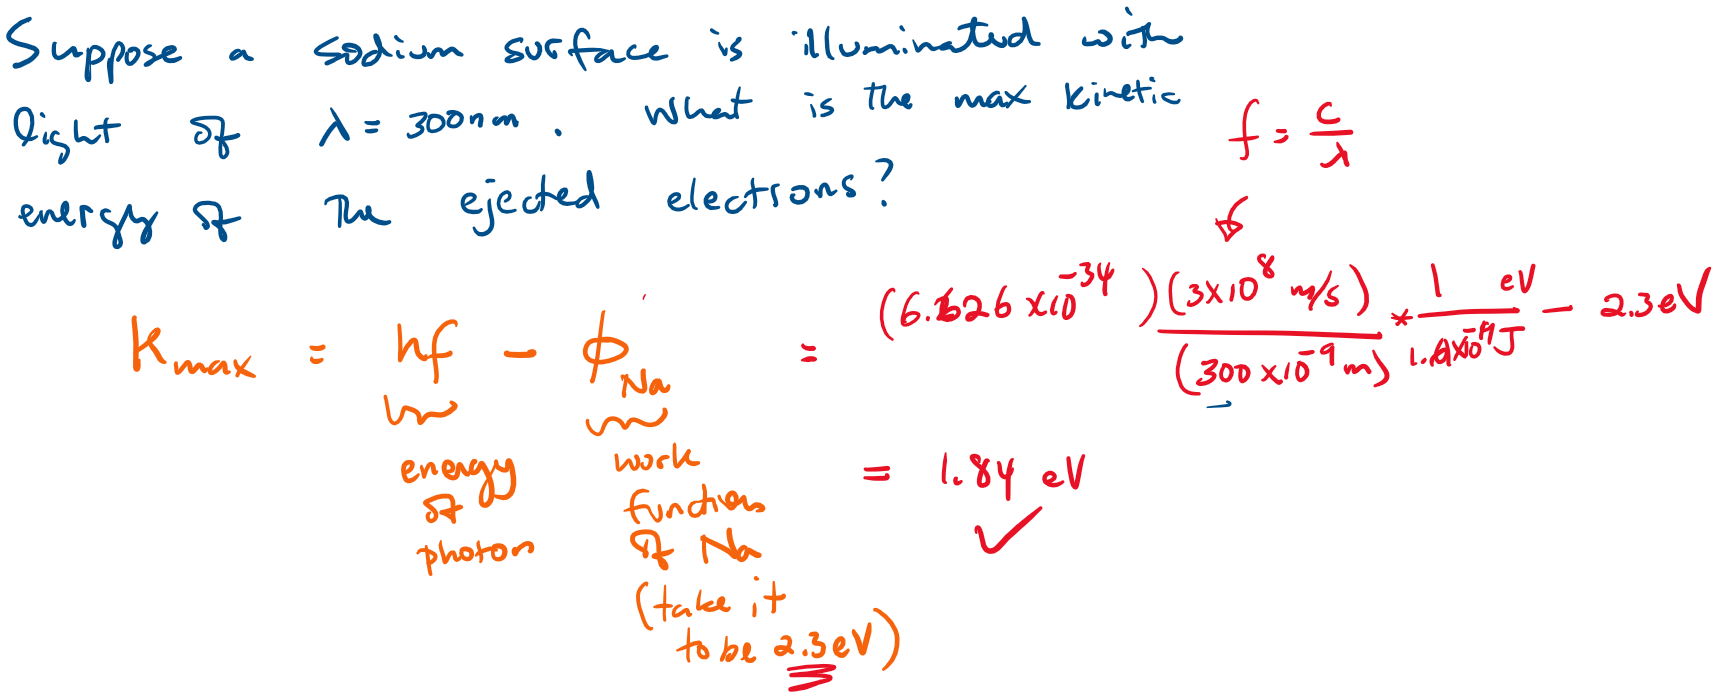 Suppose a sodium surface is illuminated with
light of λ = 300 nm. What is the max kinetic
energy of the ejected electrons?
f = c/λ
K max = hf - ϕ Na = (6.626 × 10^-34)(3×10^8 m/s)/(300 × 10^-9 m) * 1 eV/1.6×10^-19 J - 2.3 eV
energy of photon
work function of Na (take it to be 2.3 eV)
= 1.84 eV ✓